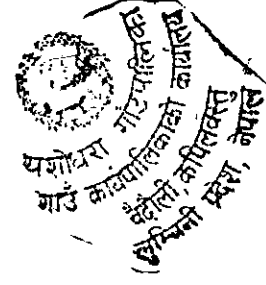 यशोधरा गाउँपालिका
गाउँ कार्यपालिकाको कार्यालय
बैदौली, कपिलवस्तु
लुम्बिनी प्रदेश, नेपाल